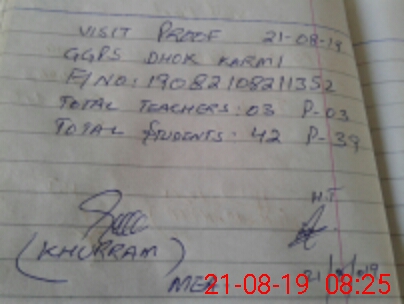 VISIT PROOF 21-08-19
GGPS DHOK KARMI
F/NO: 19082108211352
TOTAL TEACHERS: 03 P-03
TOTAL STUDENTS: 42 P-39
H.T
(KHURRAM)
MEA
21-08-19 08:25